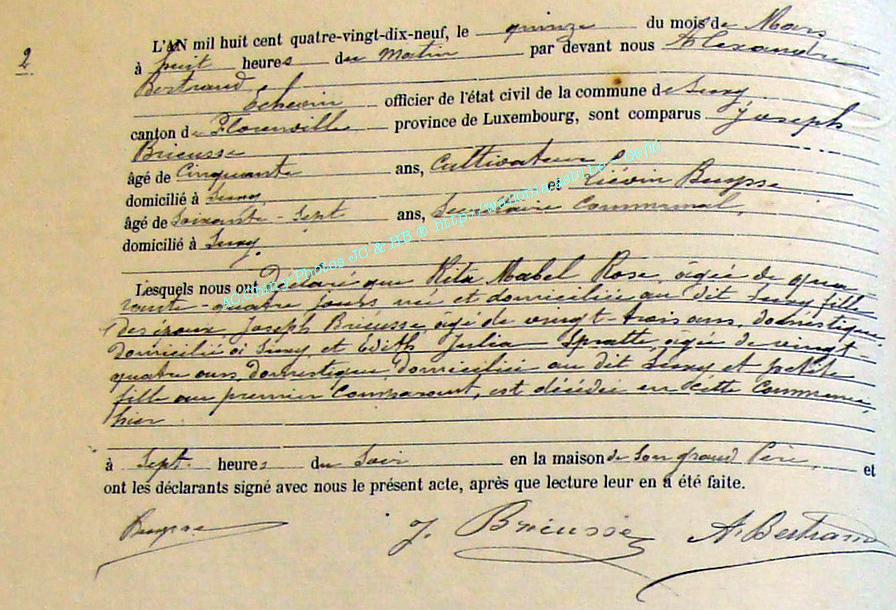 2
L'AN mil huit cent quatre-vingt-dix-neuf, le quinze du mois de Mars
à huit heures du matin par devant nous Alexandre
Bertrand
Echevin officier de l'état civil de la commune de Suxy
canton de Florenville province de Luxembourg, sont comparus Joseph
Brieusse
âgé de Cinquante ans, Cultivateur
domicilié à Suxy et Liévin Buysse
âgé de Soixante-Sept ans, Secrétaire Communal,
domicilié à Suxy.
Lesquels nous ont Déclaré que Rita Mabel Rose, âgée de qua-
rante-quatre jours née et domiciliée au dit Suxy fille
des époux Joseph Brieusse âgé de vingt-trois ans, domestique
domicilié à Suxy et Edith Julia Spratte âgée de vingt-
quatre ans, domestique, domiciliée au dit Suxy et petite
fille au premier Comparant, est décédée en cette Commune,
hier
à Sept heures du Soir en la maison de Son grand Père, et
ont les déclarants signé avec nous le présent acte, après que lecture leur en a été faite.
Buysse J. Brieusse A. Bertrand